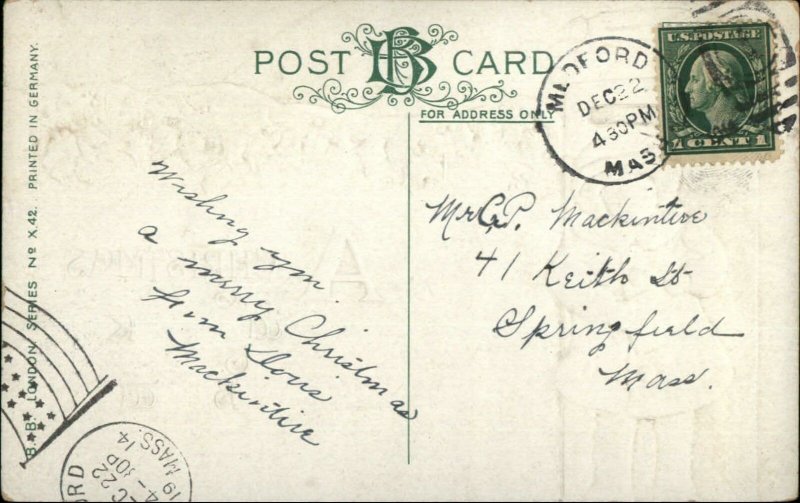 POST CARD
FOR ADDRESS ONLY
B.B. LONDON. SERIES Nº X.42. PRINTED IN GERMANY.
MEDFORD
DEC 22
4 30 PM
MASS
U.S. POSTAGE
1 CENT 1
Wishing you
a merry Christmas
from Doris
Mackintire
Mr G.P. Mackintire
41 Keith St
Springfield
Mass.
MASS. 14
DEC 22
4-30P
19